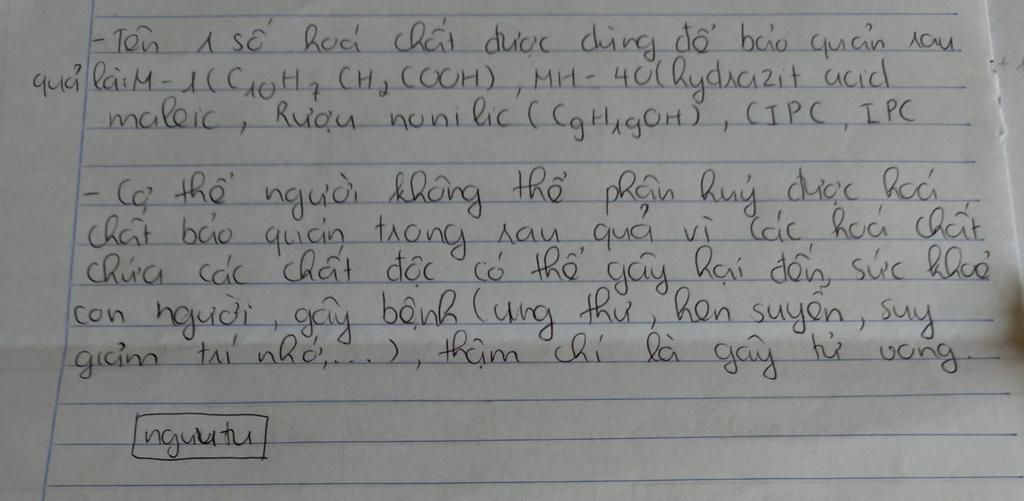 - Tên 1 số hoá chất được dùng để bảo quản rau
quả là: M-1(C10H7CH2COOH), MH-40(hydrazit acid
maleic, Rượu nonilic (C9H19OH), CIPC, IPC
- Cơ thể người không thể phân huỷ được hoá
chất bảo quản trong rau quả vì các hoá chất
chứa các chất độc có thể gây hại đến sức khoẻ
con người, gây bệnh (ung thư, hen suyễn, suy
giảm trí nhớ,...), thậm chí là gây tử vong.
nguutu